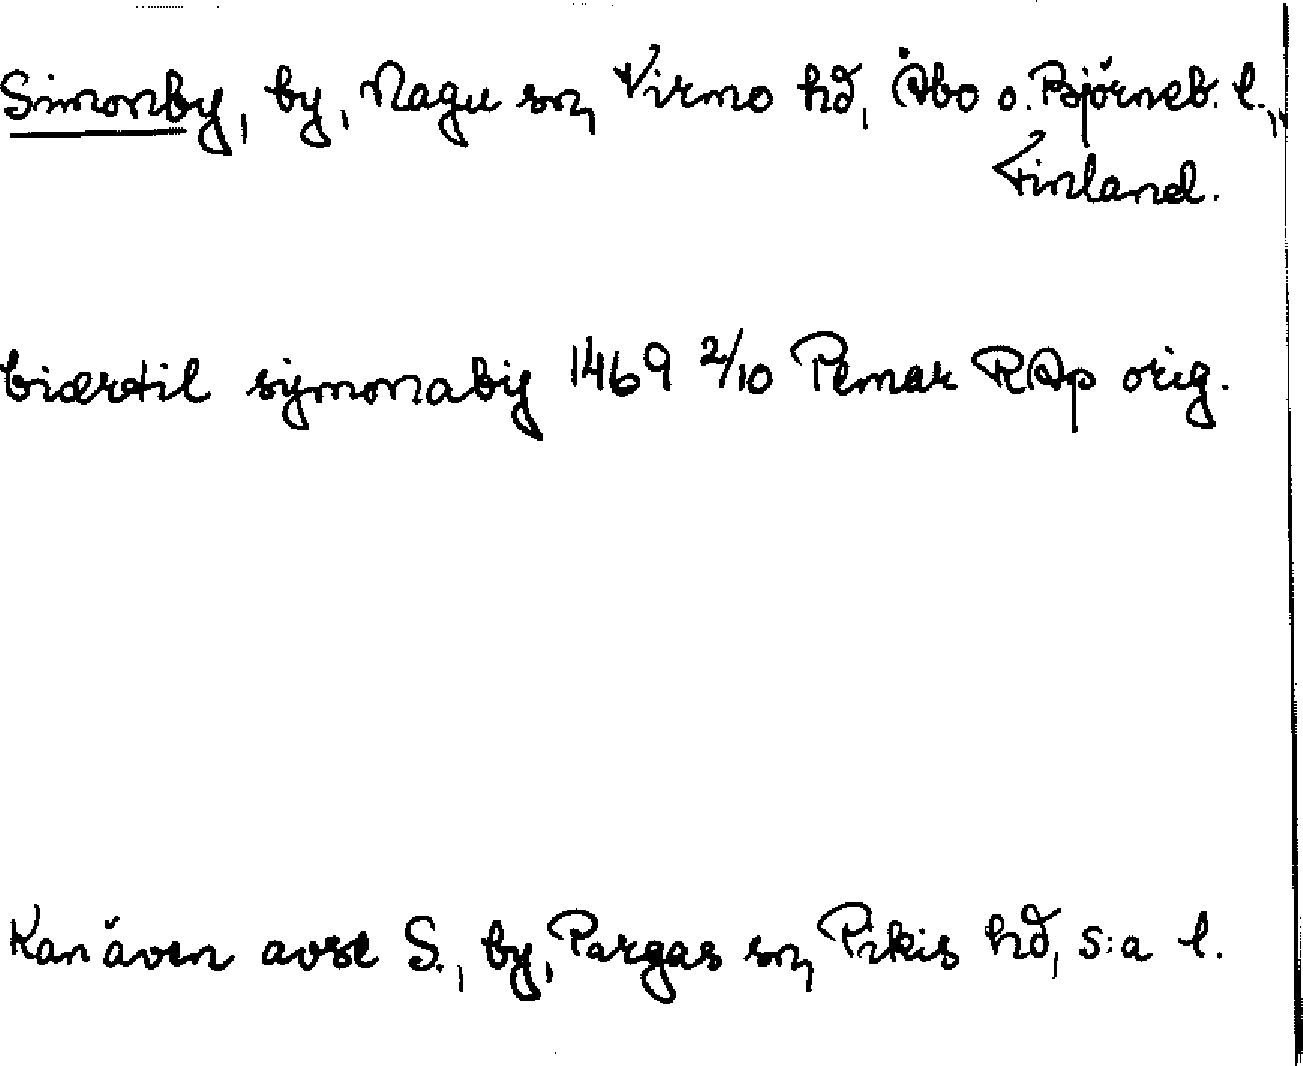 Simonby, by, Nagu sn, Virmo hd, Åbo o. Björneb. l.,
Finland.
biærtil symonaby 1469 2/10 Pemar RAp orig.
Kan även avse S., by, Pargas sn, Pikis hd, s:a l.